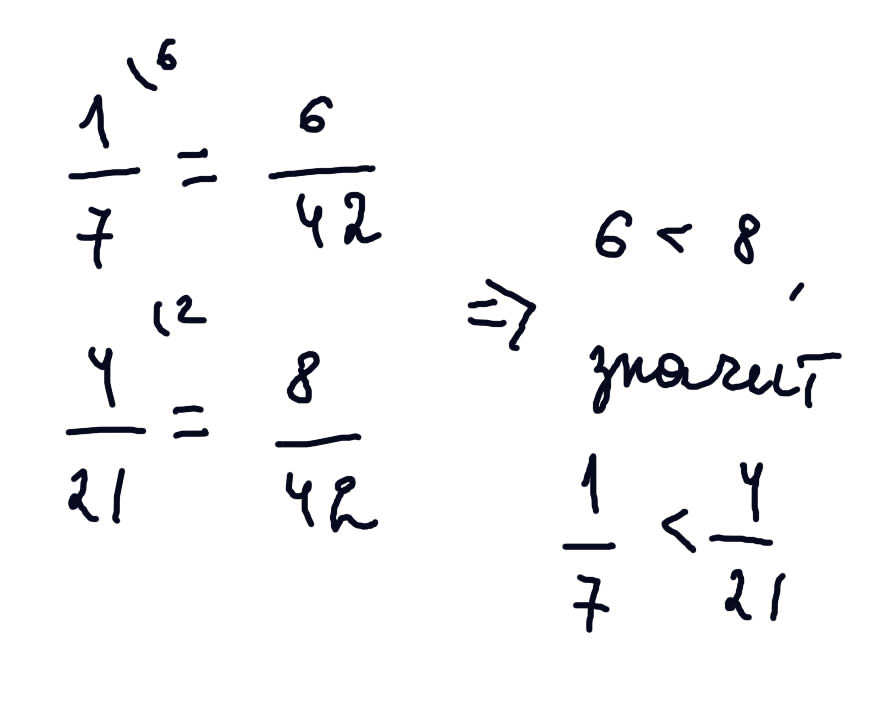 1/7 \6 = 6/42
4/21 \2 = 8/42
⇒ 6 < 8,
значит
1/7 < 4/21